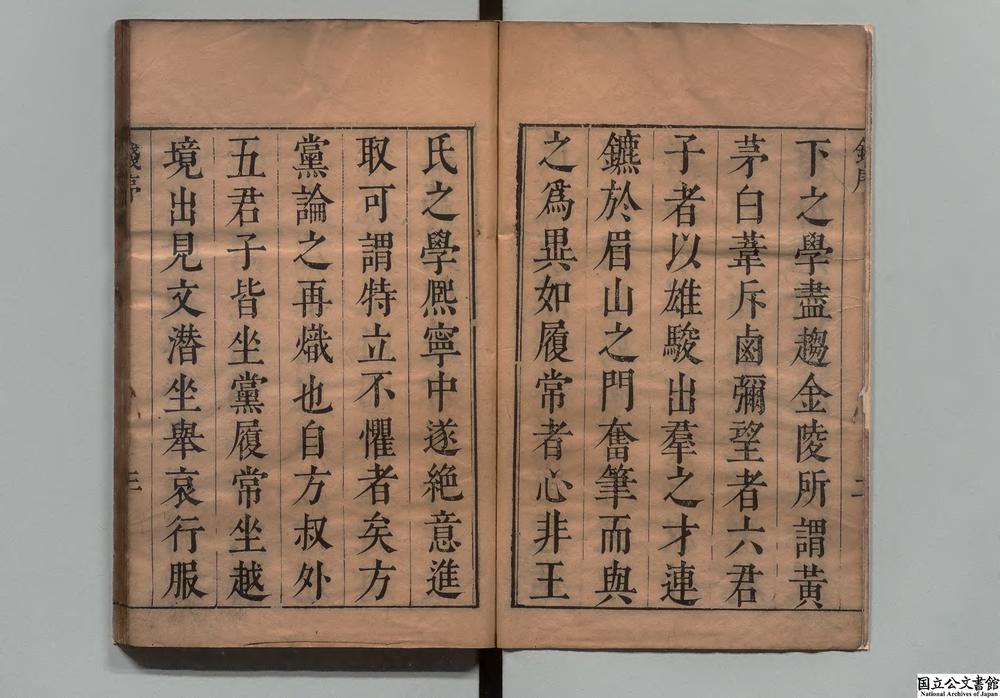 下之學盡趨金陵所謂黃
茅白葦斥鹵彌望者六君
子者以雄駿出羣之才連
鑣於眉山之門奮筆而與
之爲異如履常者心非王
氏之學熈寧中遂絶意進
取可謂特立不懼者矣方
黨論之再熾也自方叔外
五君子皆坐黨履常坐越
境出見文潜坐舉哀行服
国立公文書館
National Archives of Japan